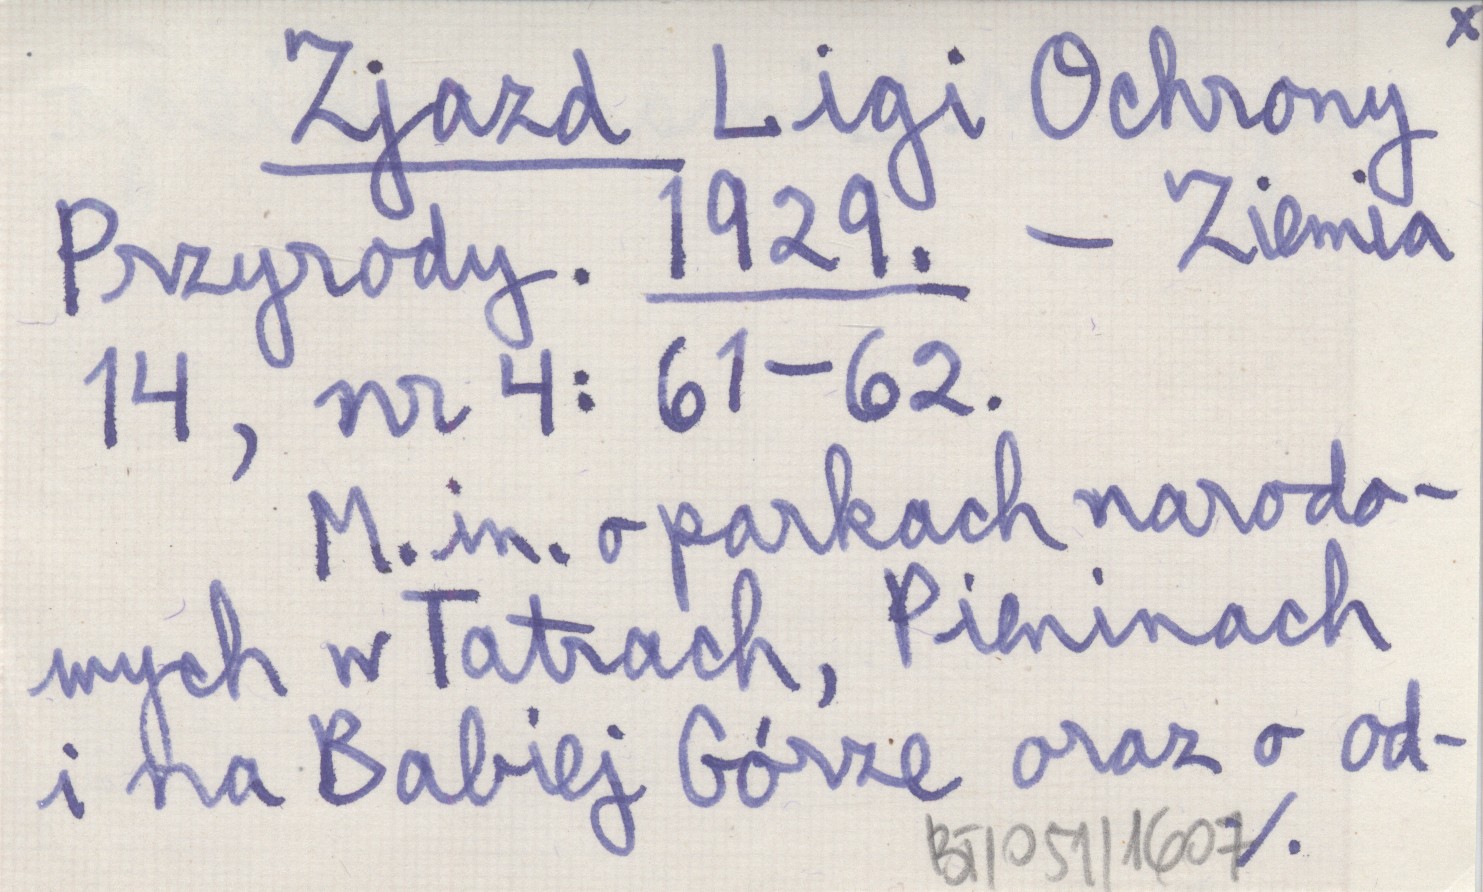 x
Zjazd Ligi Ochrony
Przyrody. 1929. — Ziemia
14, nr 4: 61—62.
M. in. o parkach narodo-
wych w Tatrach, Pieninach
i na Babiej Górze oraz o od-
BT/051/1607 /.